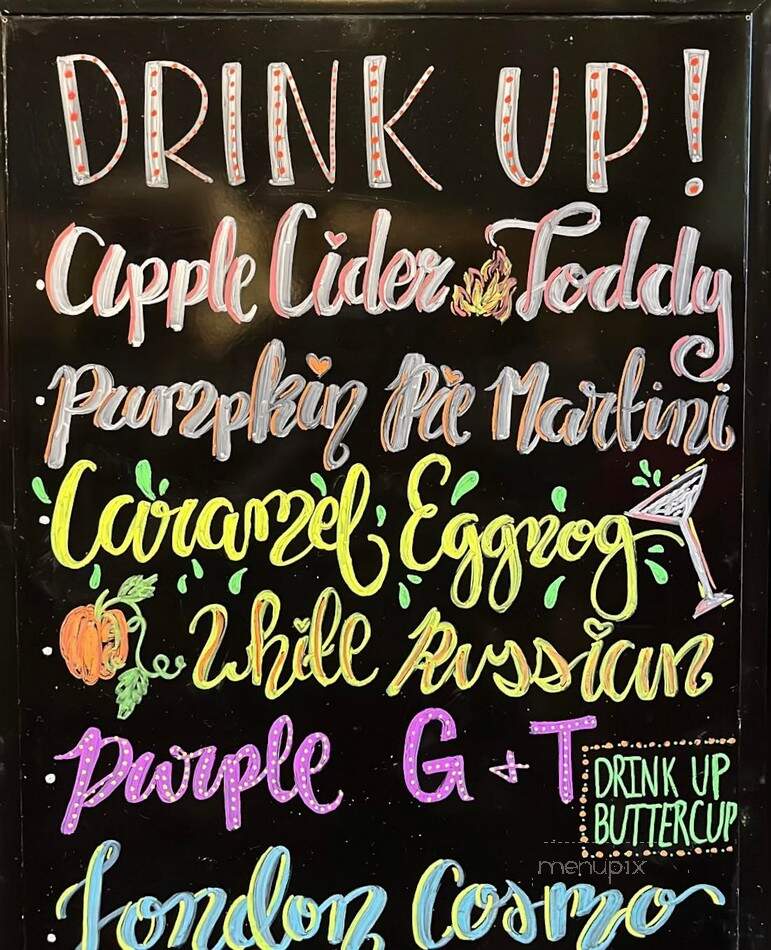 DRINK UP!
Apple Cider Toddy
Pumpkin Pie Martini
Caramel Eggnog
White Russian
Purple G + T
DRINK UP
BUTTERCUP
menupix
London Cosmo